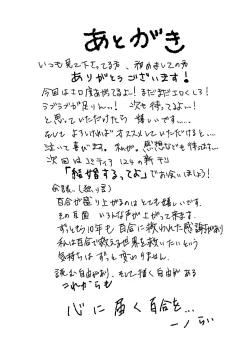 あとがき
いつも見て下さってる方、初めましての方
ありがとうございます！
今回はエロ度お休みで！まだまだエロくしろ！
ラブラブが足りんっ！次も待ってるよー！
と思っていただけたら嬉しいです。
そして よろしければオススメしていただけると…
泣いて喜びます。私が。感想なども待ってます…
次回はコミティア124の新刊
「結婚するってよ」でお会いしましょう！
百合が盛り上がるのはとても嬉しいです。
その反面 いろんな声が上がって来ます。
ずっともう10年も百合に救われた感謝があり
私は百合で救える世界を救いたいという
気持ちはずっと変わりません。
読む自由があり、そして描く自由がある
これからも
心に届く百合を…